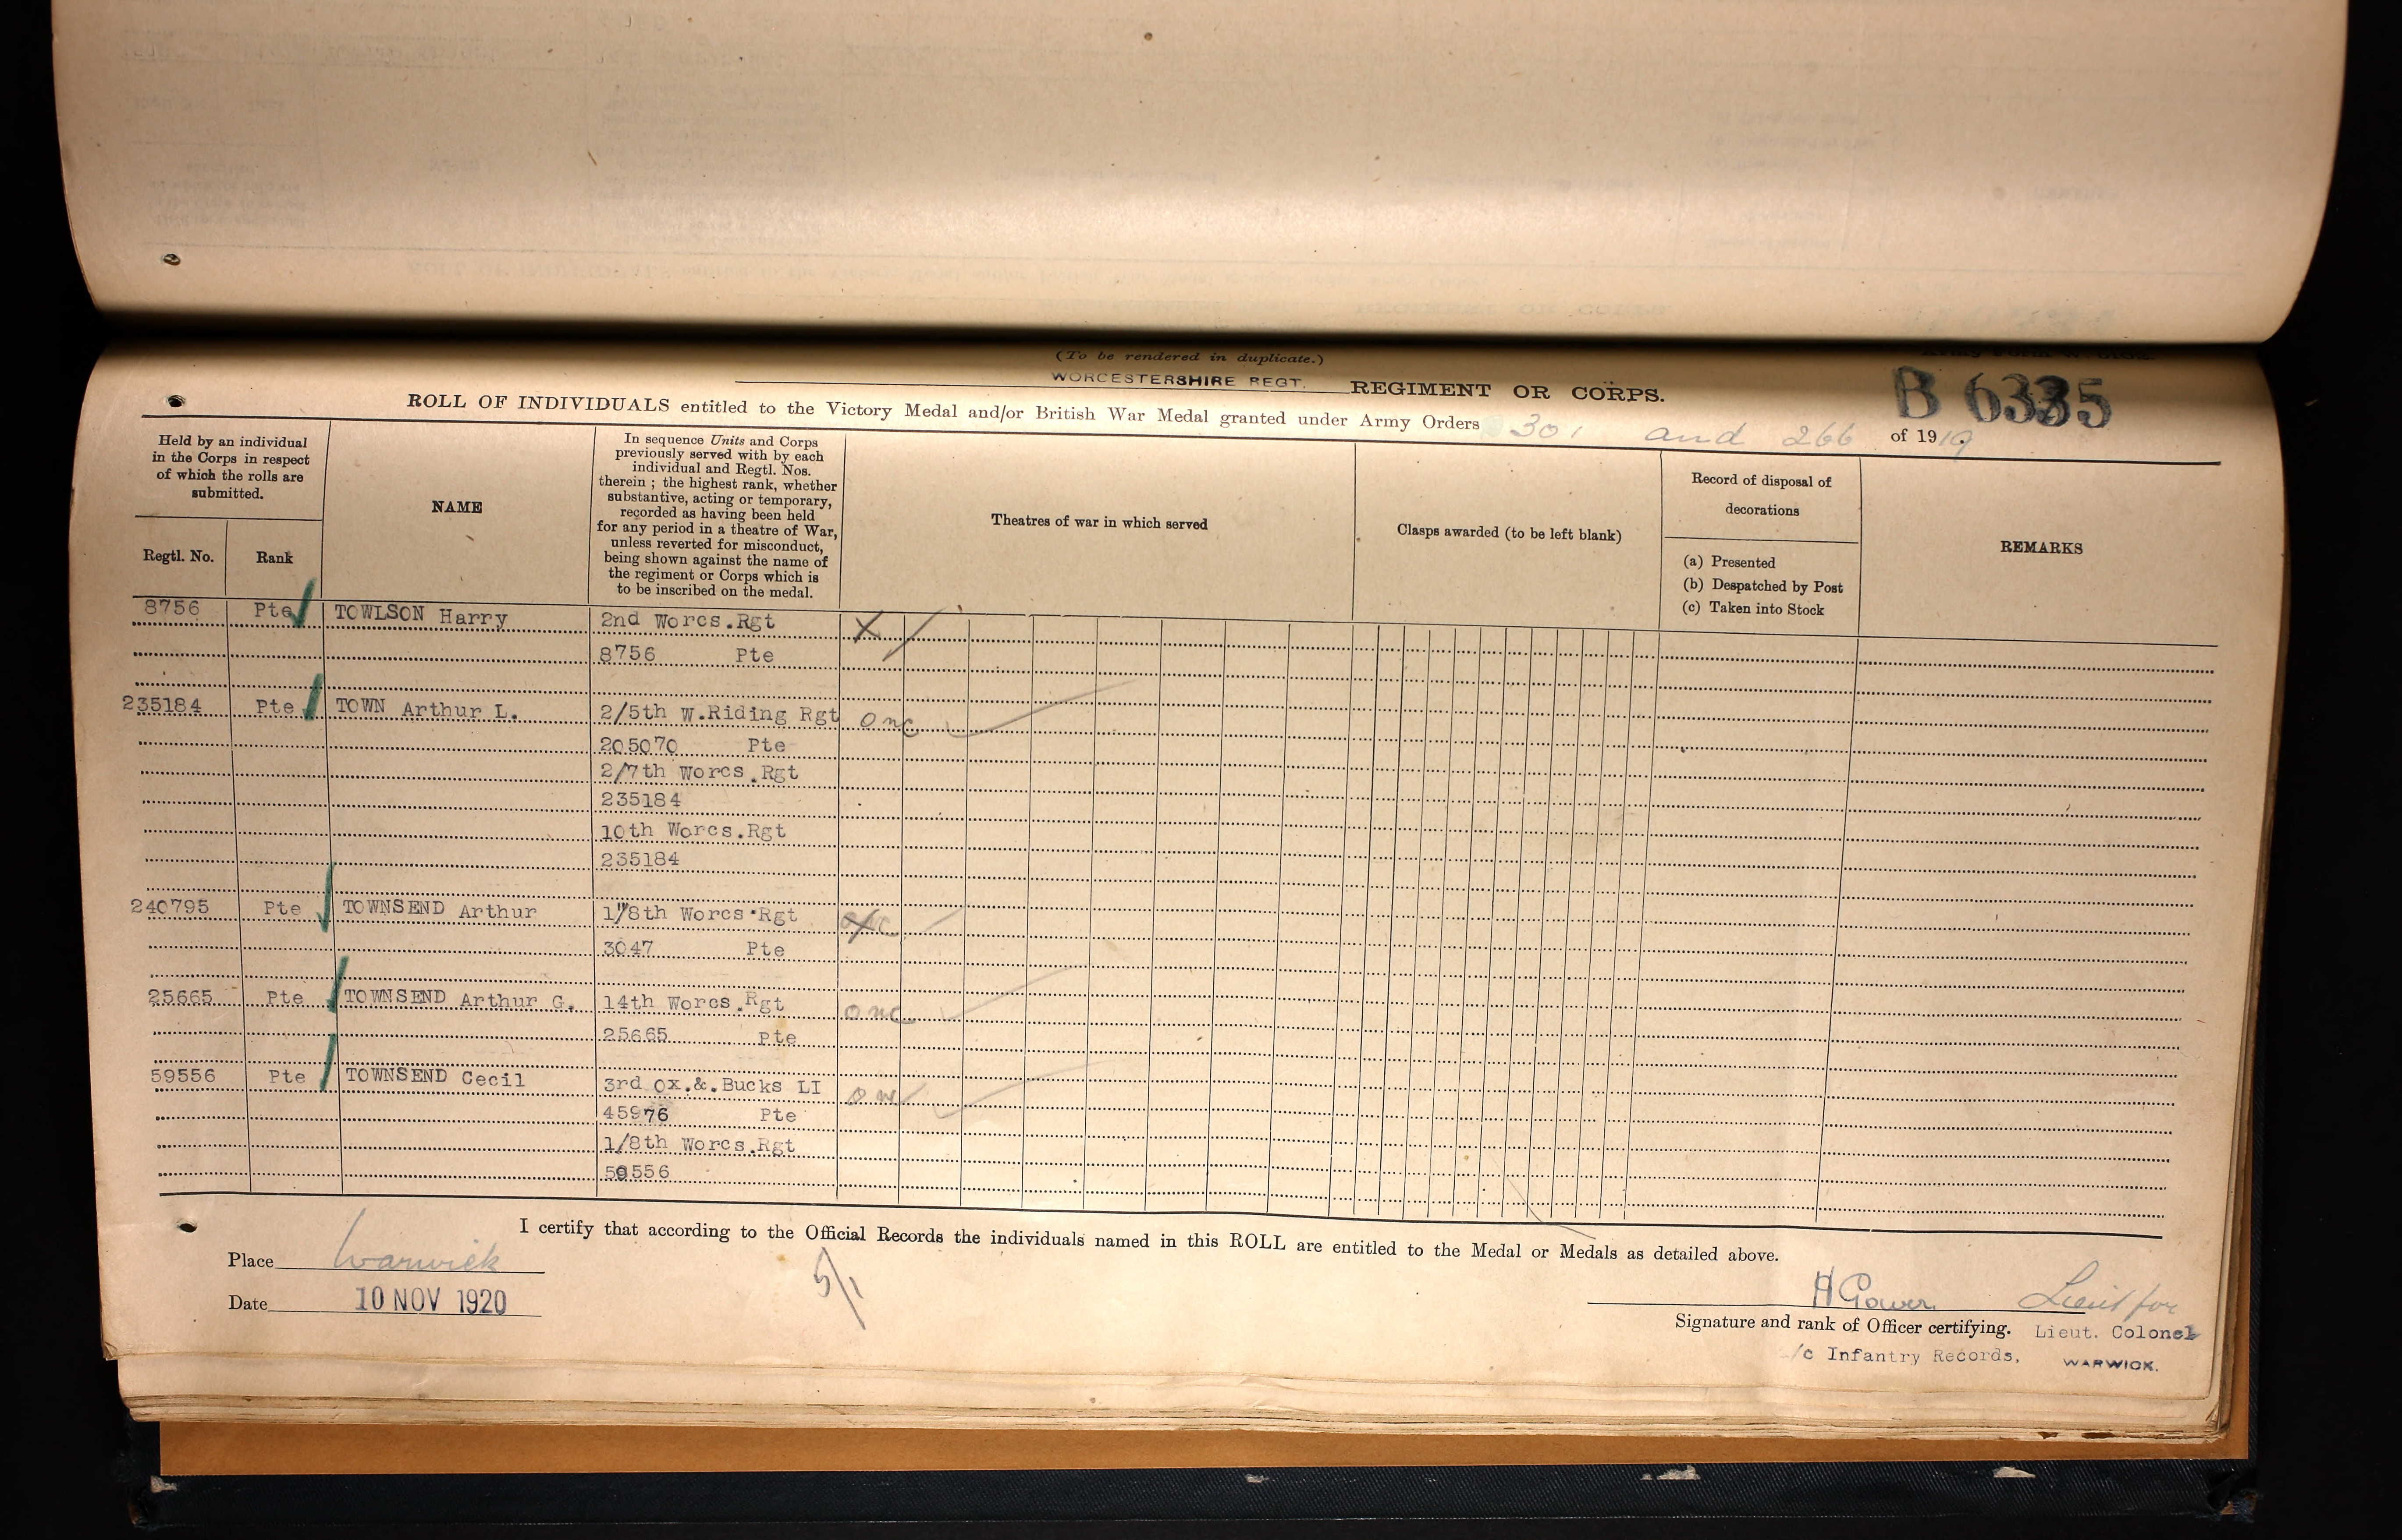 (To be rendered in duplicate.)
WORCESTERSHIRE REGT. REGIMENT OR CORPS.
B 6335
ROLL OF INDIVIDUALS entitled to the Victory Medal and/or British War Medal granted under Army Orders 301 and 266 of 1919.
Held by an individual
in the Corps in respect
of which the rolls are
submitted.
Regtl. No.
Rank
NAME
In sequence Units and Corps
previously served with by each
individual and Regtl. Nos.
therein ; the highest rank, whether
substantive, acting or temporary,
recorded as having been held
for any period in a theatre of War,
unless reverted for misconduct,
being shown against the name of
the regiment or Corps which is
to be inscribed on the medal.
Theatres of war in which served
Clasps awarded (to be left blank)
Record of disposal of
decorations
(a) Presented
(b) Despatched by Post
(c) Taken into Stock
REMARKS
8756 Pte TOWLSON Harry 2nd Worcs.Rgt X
8756 Pte
235184 Pte TOWN Arthur L. 2/5th W.Riding Rgt onc
205070 Pte
2/7th Worcs.Rgt
235184
10th Worcs.Rgt
235184
240795 Pte TOWNSEND Arthur 1/8th Worcs.Rgt
3047 Pte
25665 Pte TOWNSEND Arthur G. 14th Worcs.Rgt onc
25665 Pte
59556 Pte TOWNSEND Cecil 3rd Ox.&.Bucks LI
45976 Pte
1/8th Worcs.Rgt
59556
I certify that according to the Official Records the individuals named in this ROLL are entitled to the Medal or Medals as detailed above.
Place Warwick
5/1
Date 10 NOV 1920
H Gower Lieut for
Signature and rank of Officer certifying. Lieut. Colonel
/c Infantry Records, WARWICK.